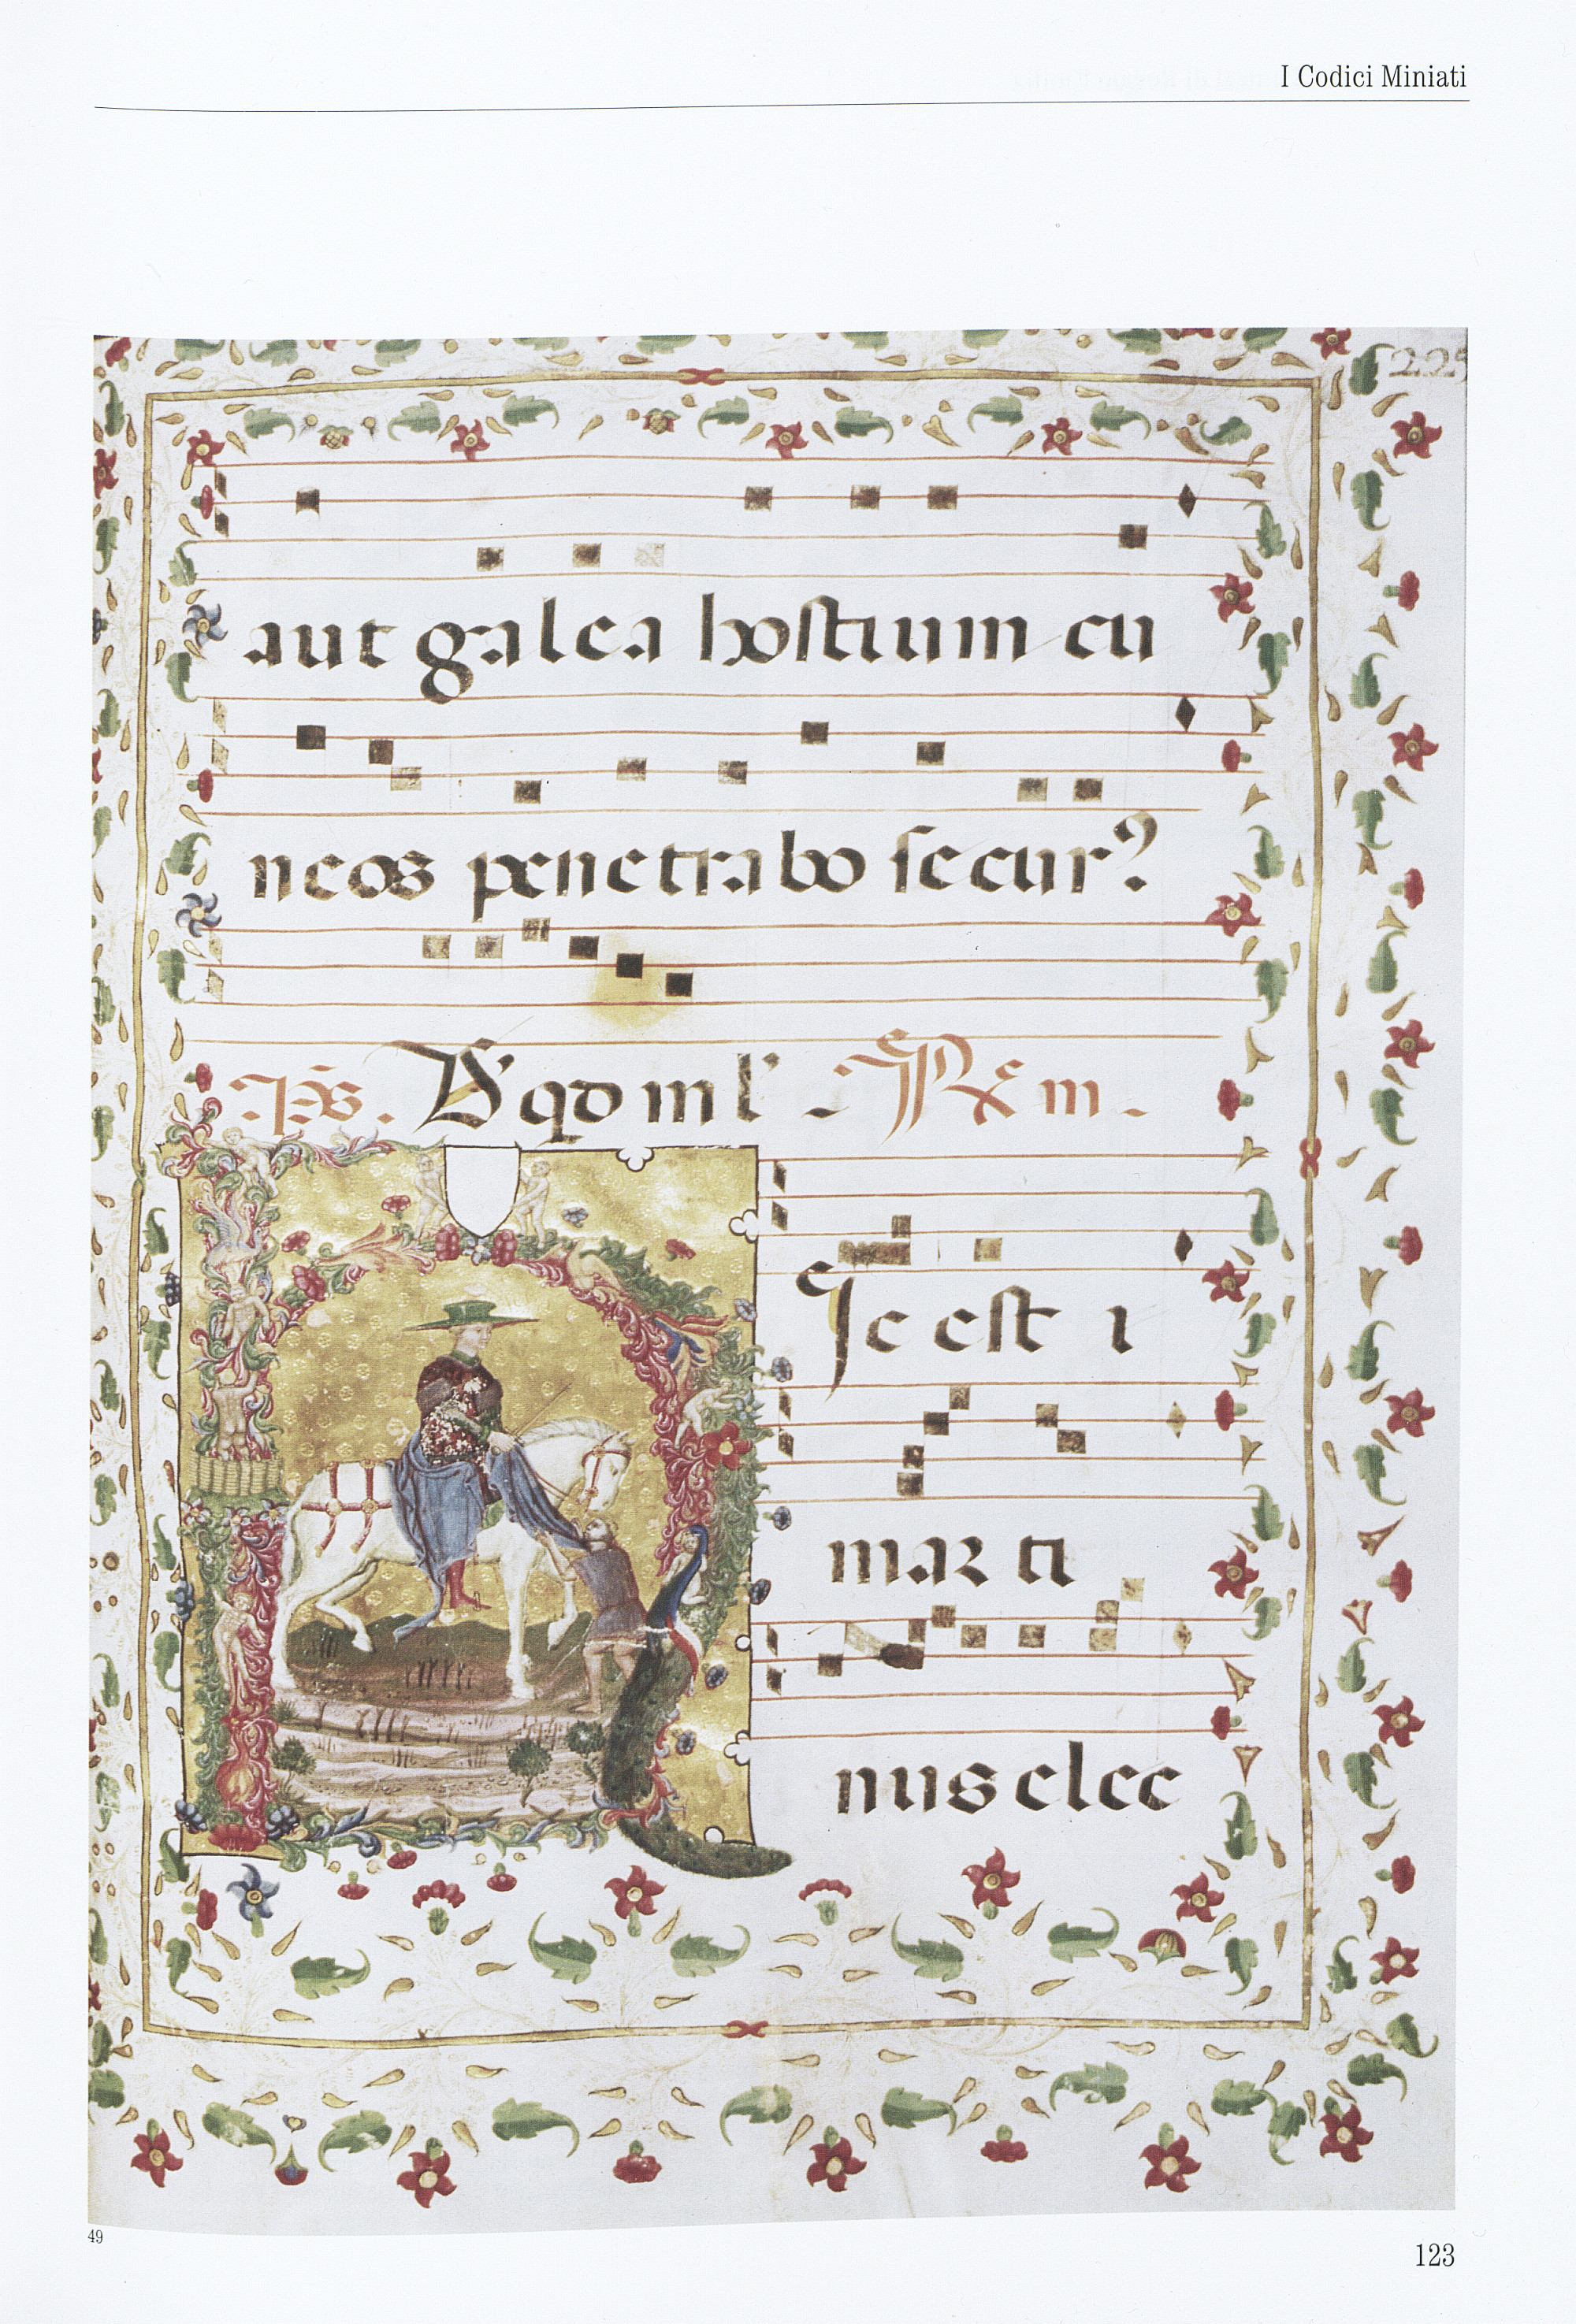 I Codici Miniati
225
aut galea hostium cu
neos penetrabo secur?
Ps. Ds qd in l' R m.
Ic est i
mar ti
nus elec
49
123